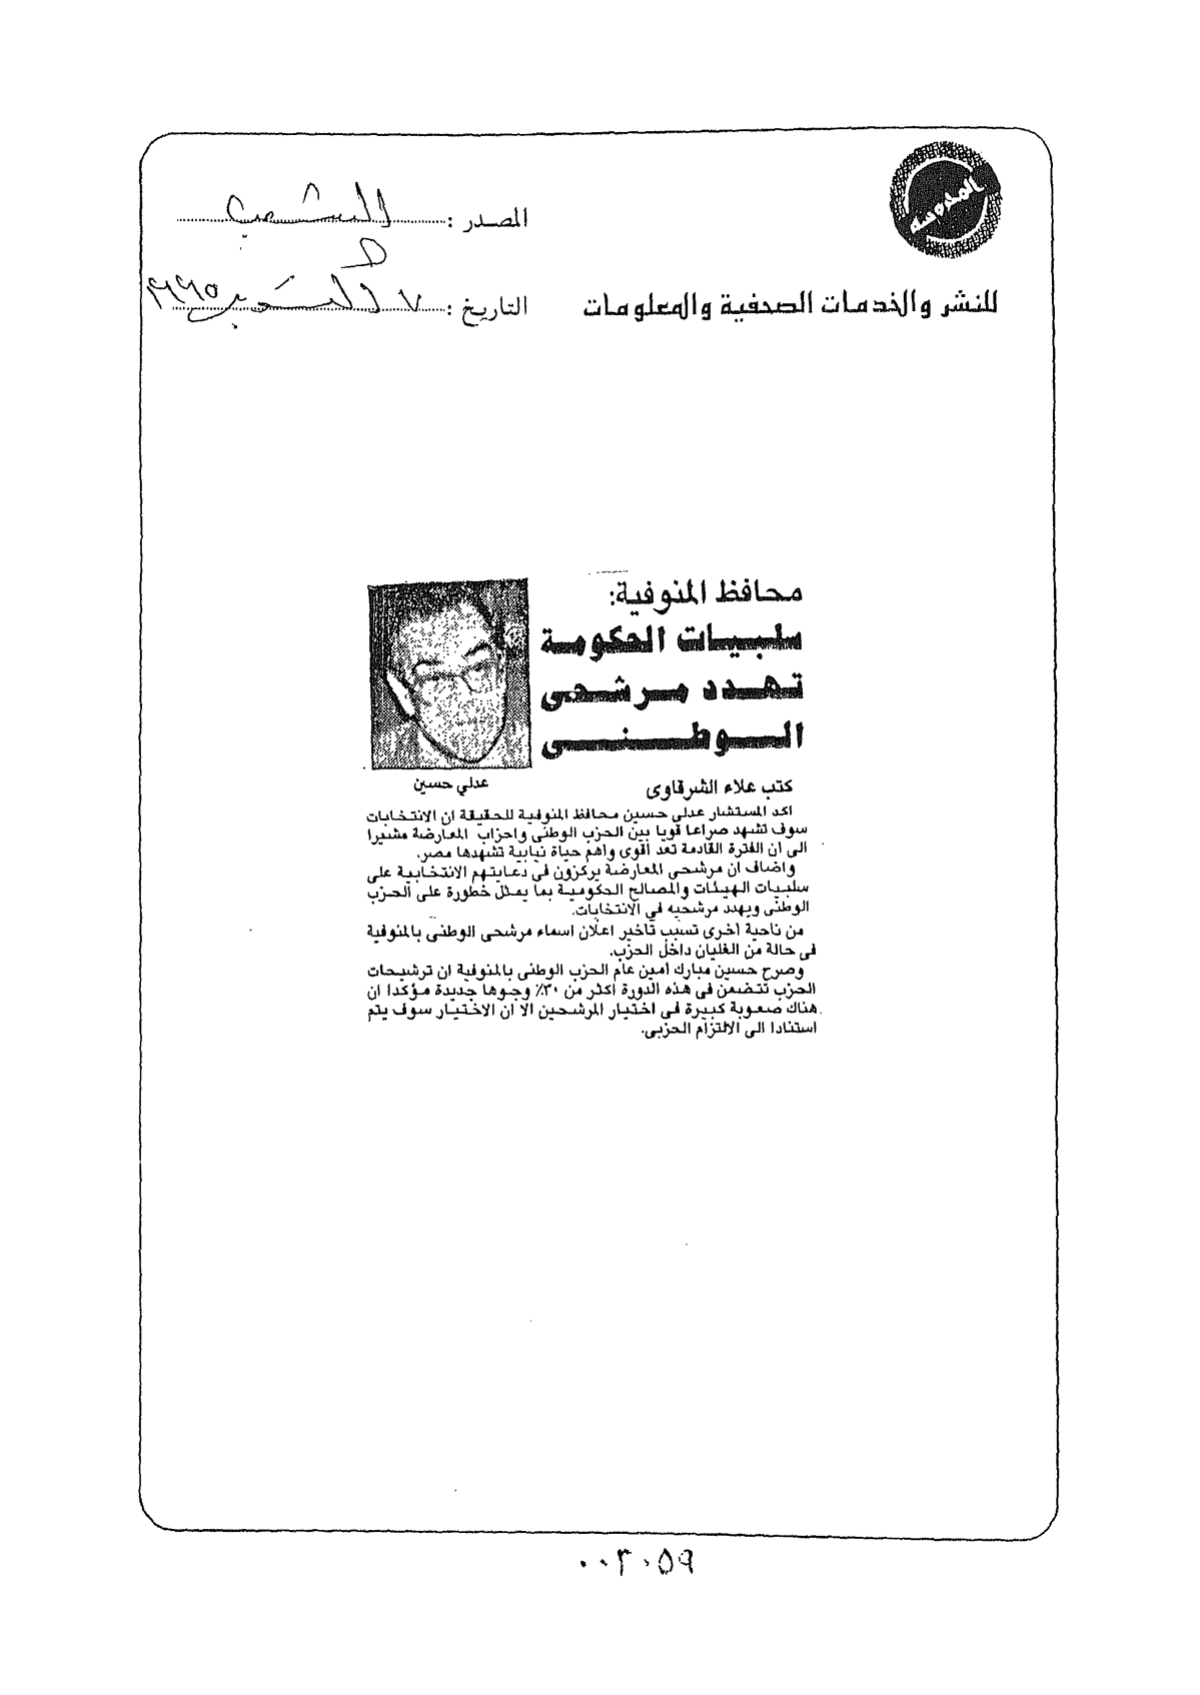 المدوسه
المصدر : الشعب
للنشر والخدمات الصحفية والمعلومات
التاريخ : ٧
محافظ المنوفية:
سلبيات الحكومة
تهدد مرشحى
الوطنى
عدلي حسين
كتب علاء الشرقاوى
اكد المستشار عدلى حسين محافظ المنوفية للحقيقة ان الانتخابات
سوف تشهد صراعا قويا بين الحزب الوطنى واحزاب المعارضة مشيرا
الى ان الفترة القادمة تعد أقوى واهم حياة نيابية تشهدها مصر.
واضاف ان مرشحى المعارضة يركزون فى دعايتهم الانتخابية على
سلبيات الهيئات والمصالح الحكومية بما يمثل خطورة على الحزب
الوطنى ويهدد مرشحيه في الانتخابات.
من ناحية أخرى تسبب تأخير اعلان اسماء مرشحى الوطنى بالمنوفية
فى حالة من الغليان داخل الحزب.
وصرح حسين مبارك أمين عام الحزب الوطنى بالمنوفية ان ترشيحات
الحزب تتضمن فى هذه الدورة اكثر من ٣٠٪ وجوها جديدة مؤكدا ان
هناك صعوبة كبيرة فى اختيار المرشحين الا ان الاختيار سوف يتم
استنادا الى الالتزام الحزبى.
٠٠٣٠٥٩